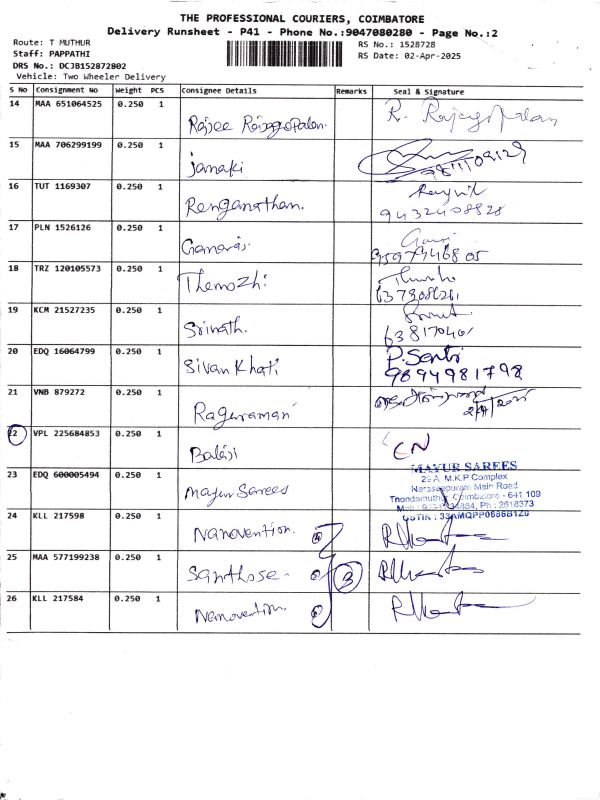 THE PROFESSIONAL COURIERS, COIMBATORE
Delivery Runsheet - P41 - Phone No.:9047080280 - Page No.:2
Route: T MUTHUR
RS No.: 1528728
Staff: PAPPATHI
RS Date: 02-Apr-2025
DRS No.: DCJB152872802
Vehicle: Two Wheeler Delivery
S No Consignment No Weight PCS Consignee Details Remarks Seal & Signature
14 MAA 651064525 0.250 1 Rajee Rajagopalan R. Rajagopalan
15 MAA 706299199 0.250 1 Janaki
16 TUT 1169307 0.250 1 Renganathan. 9432408828
17 PLN 1526126 0.250 1
18 TRZ 120105573 0.250 1 Themozhi
19 KCM 21527235 0.250 1 Srinath.
20 EDQ 16064799 0.250 1 Sivan Khati P. Senti 9894981798
21 VNB 879272 0.250 1 Raguraman
22 VPL 225684853 0.250 1 Balaji CN
23 EDQ 600005494 0.250 1 Mayur Sarees
MAYUR SAREES
M.K.P Complex
Main Road
Coimbatore - 641 109
Ph : 2618373
24 KLL 217598 0.250 1 Nanovention.
25 MAA 577199238 0.250 1 Santhose 3
26 KLL 217584 0.250 1 Nanovention.